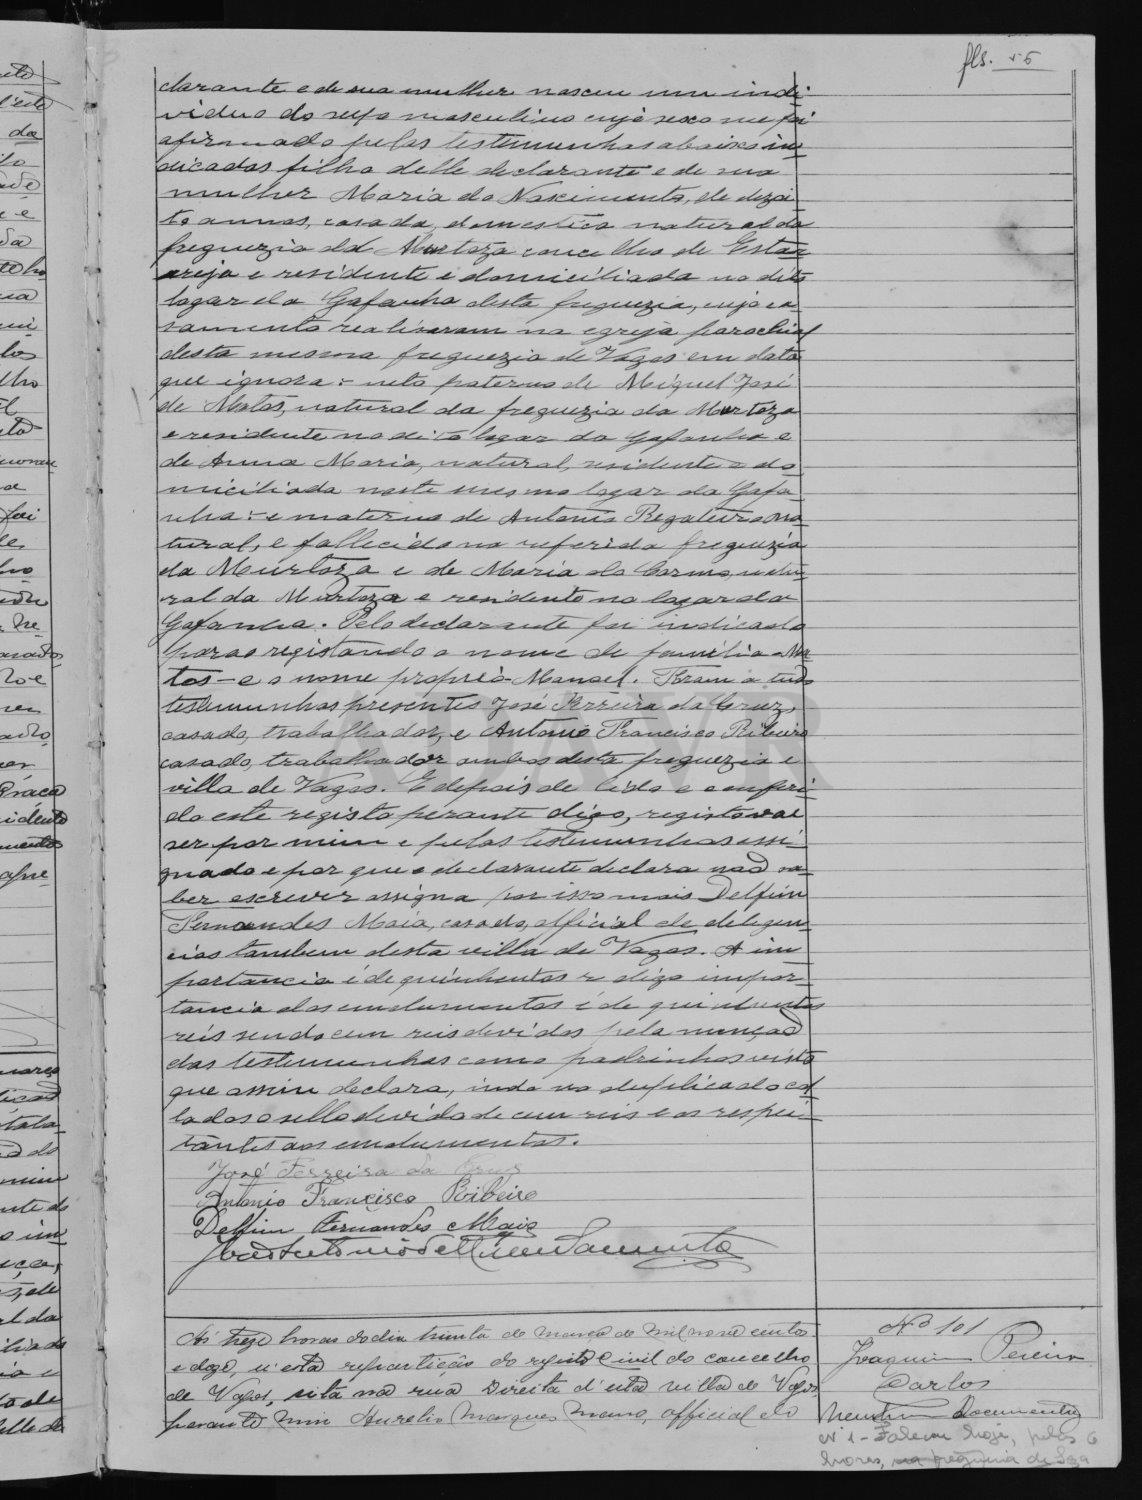 fls. 55
clarante e de sua mulher nasceu um indi-
viduo do sexo masculino cujo sexo me foi
afirmado pelas testemunhas abaixo in-
dicadas filho delle declarante e de sua
mulher Maria do Nascimento, de dezoi-
to annos, casada, domestica natural da
freguezia da Murtoza concelho de Estar-
reja e residente e domiciliada no dito
logar da Gafanha desta freguezia, cujo ca-
samento realisaram na egreja parochial
desta mesma freguezia de Vagos em data
que ignora :- neto paterno de Miguel José
de Matos, natural da freguezia da Murtoza
e residente no dito logar da Gafanha e
de Anna Maria, natural, residente e do-
miciliada neste mesmo logar da Gafa-
nha :- e materno de Antonio Regateiro na-
tural, e fallecido na referida freguezia
da Murtoza e de Maria do Carmo, natu-
ral da Murtoza e residente no logar da
Gafanha. Pelo declarante foi indicado
para o registando o nome de familia - Ma-
tos - e o nome proprio Manoel. Foram a tudo
testemunhas presentes José Ferreira da Cruz,
casado, trabalhador, e Antonio Francisco Ribeiro
casado, trabalhador ambos desta freguezia e
villa de Vagos. E depois de lido e conferi-
do este registo perante digo, registo vae
ser por mim e pelas testemunhas assi-
gnado e por que o declarante declara não sa-
ber escrever assigna por isso mais Delfim
Fernandes Maia, casado, official de deligen-
cias tambem desta villa de Vagos. A im-
portancia é de quinhentos r digo impor-
tancia dos emolumentos é de quinhentos
reis sendo cem reis devidos pela menção
das testemunhas como padrinhos visto
que assim declara, indo no duplicado col-
lados o sello devido de cem reis e os respei-
tantes aos emolumentos.
José Ferreira da Cruz
Antonio Francisco Ribeiro
Delfim Fernandes Maia
ADAVR
Ás treze horas do dia trinta de março de mil nove centos
e doze, n'esta repartição do registo Civil do concelho
de Vagos, sita na rua Direita d'esta villa de Vagos,
perante mim Aurelio Marques Mano, official do
Nº 101
Joaquim Pereira
Carlos
Nenhum Documento
Nº 1 - Faleceu hoje, pelas 6
horas, na freguesia de